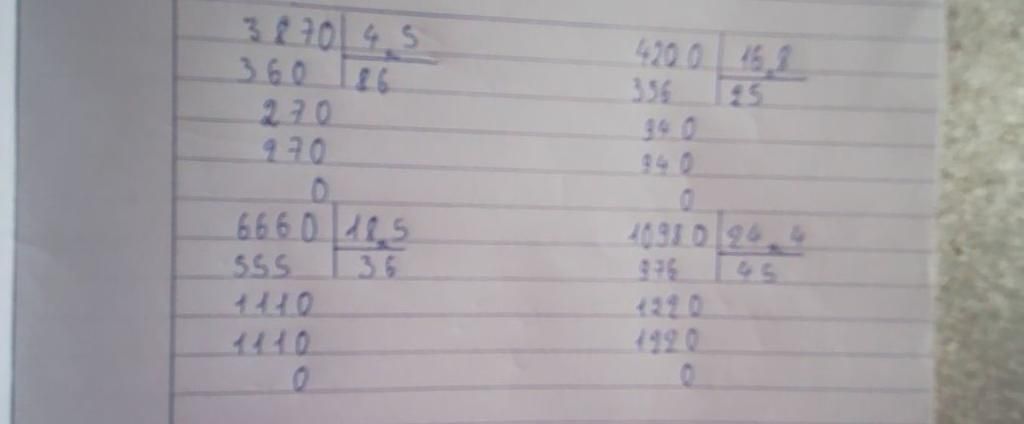 3870 4,5
360 86
270
270
0
4200 16,8
336 25
840
840
0
6660 18,5
555 36
1110
1110
0
10980 24,4
976 45
1220
1220
0